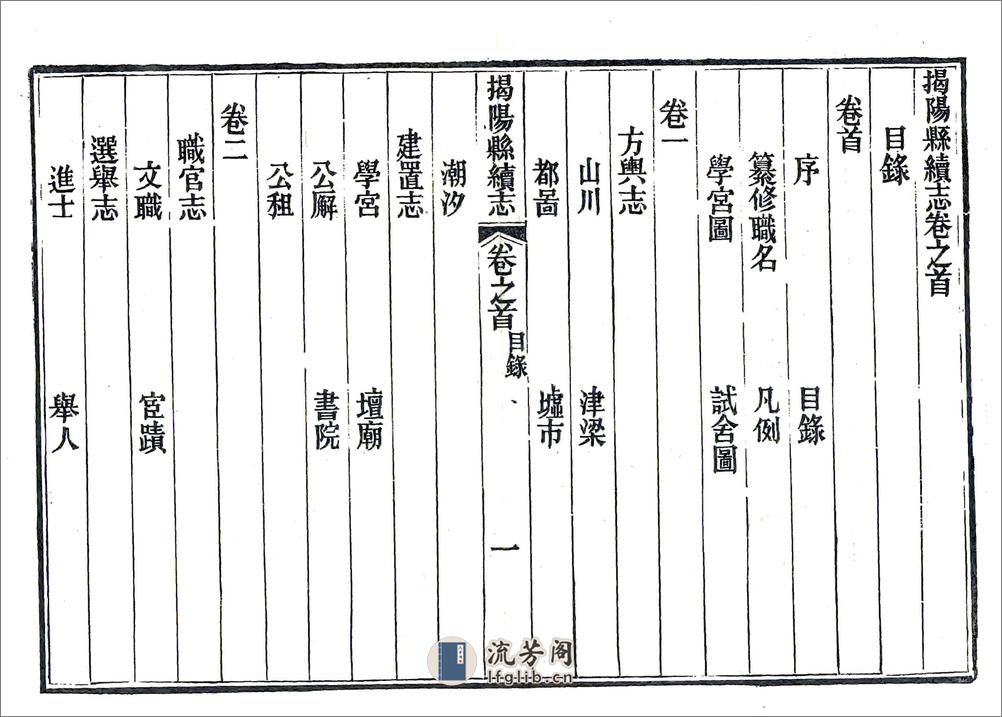 揭陽縣續志卷之首
目錄
卷首
序 目錄
纂修職名 凡例
學宮圖 試舍圖
卷一
方輿志
山川 津梁
都啚 墟市
揭陽縣續志 卷之首 目錄 一
潮汐
建置志
學宮 壇廟
公廨 書院
公租
卷二
職官志
文職 宦蹟
選舉志
進士 舉人
流芳阁
lfglib.cn